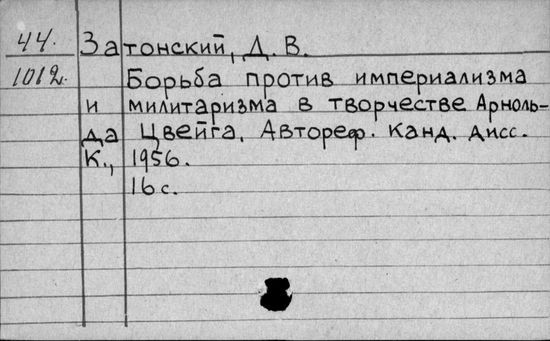 44. Затонский, Д. В.
1012. Борьба против империализма
и милитаризма в творчестве Арноль-
да Цвейга. Автореф. Канд. дисс.
К., 1956.
16 с.